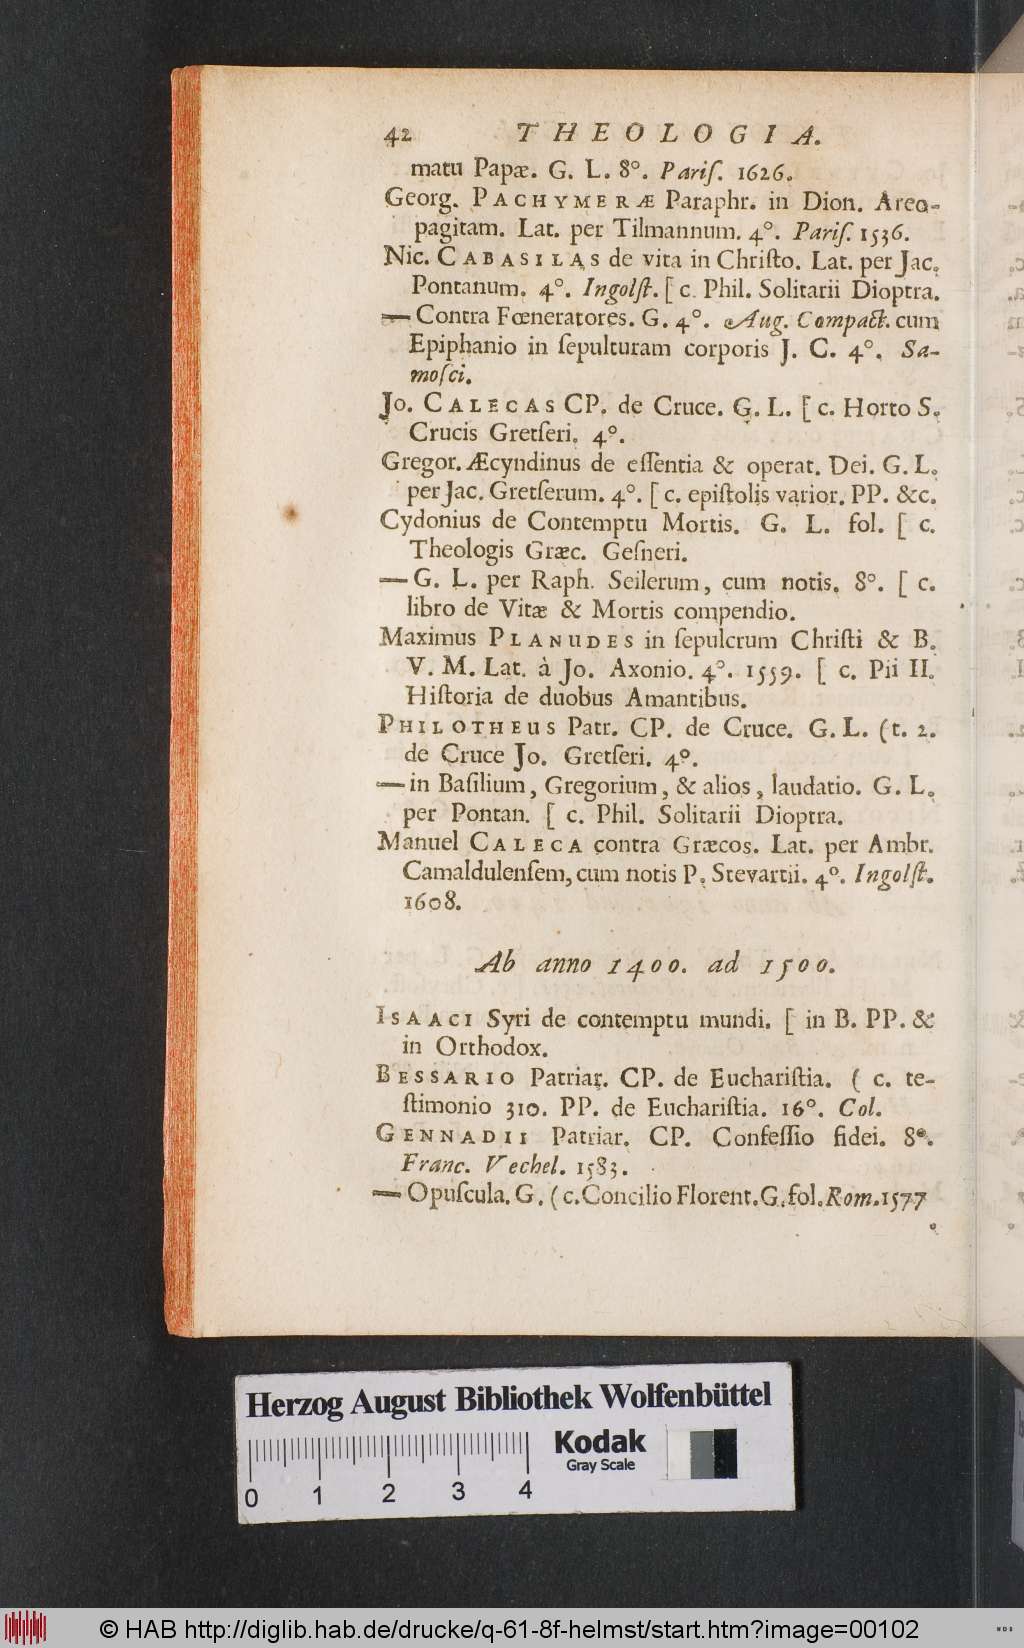 42 THEOLOGIA.
matu Papæ. G. L. 8°. Pariſ. 1626.
Georg. PACHYMERÆ Paraphr. in Dion. Areo-
pagitam. Lat. per Tilmannum. 4°. Pariſ. 1536.
Nic. CABASILAS de vita in Chriſto. Lat. per Jac.
Pontanum. 4°. Ingolſt. [ c. Phil. Solitarii Dioptra.
— Contra Fœneratores. G. 4°. Aug. Compact. cum
Epiphanio in ſepulturam corporis J. C. 4°. Sa-
moſci.
Jo. CALECAS CP. de Cruce. G. L. [ c. Horto S.
Crucis Gretſeri. 4°.
Gregor. Æcyndinus de eſſentia & operat. Dei. G. L.
per Jac. Gretſerum. 4°. [ c. epiſtolis varior. PP. &c.
Cydonius de Contemptu Mortis. G. L. fol. [ c.
Theologis Græc. Geſneri.
— G. L. per Raph. Seilerum, cum notis. 8°. [ c.
libro de Vitæ & Mortis compendio.
Maximus PLANUDES in ſepulcrum Chriſti & B.
V. M. Lat. à Jo. Axonio. 4°. 1559. [ c. Pii II.
Hiſtoria de duobus Amantibus.
PHILOTHEUS Patr. CP. de Cruce. G. L. (t. 2.
de Cruce Jo. Gretſeri. 4°.
— in Baſilium, Gregorium, & alios, laudatio. G. L.
per Pontan. [ c. Phil. Solitarii Dioptra.
Manuel CALECA contra Græcos. Lat. per Ambr.
Camaldulenſem, cum notis P. Stevartii. 4°. Ingolſt.
1608.
Ab anno 1400. ad 1500.
ISAACI Syri de contemptu mundi. [ in B. PP. &
in Orthodox.
BESSARIO Patriar. CP. de Euchariſtia. ( c. te-
ſtimonio 310. PP. de Euchariſtia. 16°. Col.
GENNADII Patriar. CP. Confeſſio fidei. 8°.
Franc. Vechel. 1583.
— Opuſcula. G. (c. Concilio Florent. G. fol. Rom. 1577
.
Herzog August Bibliothek Wolfenbüttel
Kodak
Gray Scale
0 1 2 3 4
© HAB http://diglib.hab.de/drucke/q-61-8f-helmst/start.htm?image=00102